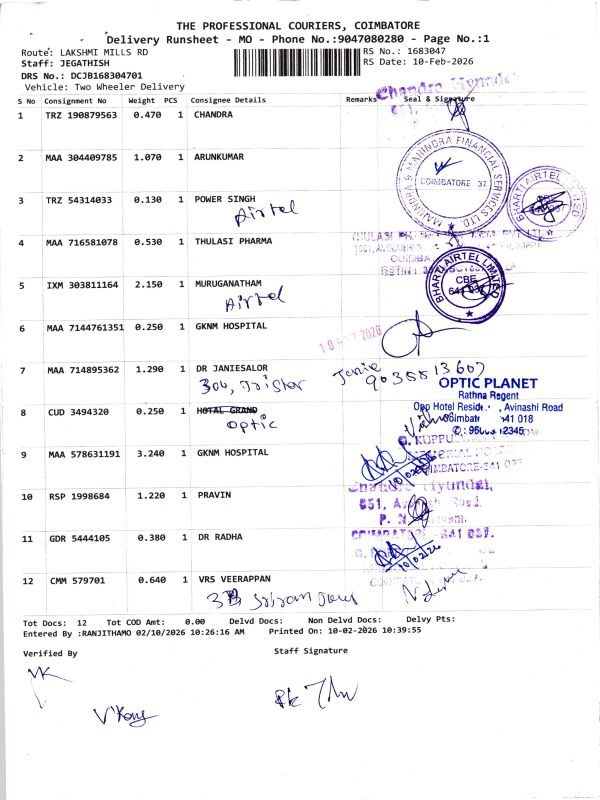 THE PROFESSIONAL COURIERS, COIMBATORE
Delivery Runsheet - MO - Phone No.:9047080280 - Page No.:1
Route: LAKSHMI MILLS RD
RS No.: 1683047
Staff: JEGATHISH
RS Date: 10-Feb-2026
DRS No.: DCJB168304701
Vehicle: Two Wheeler Delivery
S No Consignment No Weight PCS Consignee Details Remarks Seal & Signature
Chandra Hyundai
1 TRZ 190879563 0.470 1 CHANDRA
MAHINDRA & MAHINDRA FINANCIAL SERVICES LTD
COIMBATORE 37
2 MAA 304409785 1.070 1 ARUNKUMAR
3 TRZ 54314033 0.130 1 POWER SINGH
Airtel
BHARTI AIRTEL LIMITED
4 MAA 716581078 0.530 1 THULASI PHARMA
THULASI
5 IXM 303811164 2.150 1 MURUGANATHAM
Airtel
BHARTI AIRTEL LIMITED
CBE
6 MAA 7144761351 0.250 1 GKNM HOSPITAL
2026
7 MAA 714895362 1.290 1 DR JANIESALOR
304, Trister
Janie
9035513607
OPTIC PLANET
Rathna Regent
Opp Hotel , Avinashi Road
8 CUD 3494320 0.250 1 HOTAL GRAND
optic
Coimbatore 641 018
9 MAA 578631191 3.240 1 GKNM HOSPITAL
G. KUPPU
COIMBATORE-641 037
10/02/26
10 RSP 1998684 1.220 1 PRAVIN
Chandra Hyundai,
651, Road
COIMBATORE 641 037.
11 GDR 5444105 0.380 1 DR RADHA
10/02/26
12 CMM 579701 0.640 1 VRS VEERAPPAN
Tot Docs: 12 Tot COD Amt: 0.00 Delvd Docs: Non Delvd Docs: Delvy Pts:
Entered By :RANJITHAMO 02/10/2026 10:26:16 AM Printed On: 10-02-2026 10:39:55
Verified By
Staff Signature